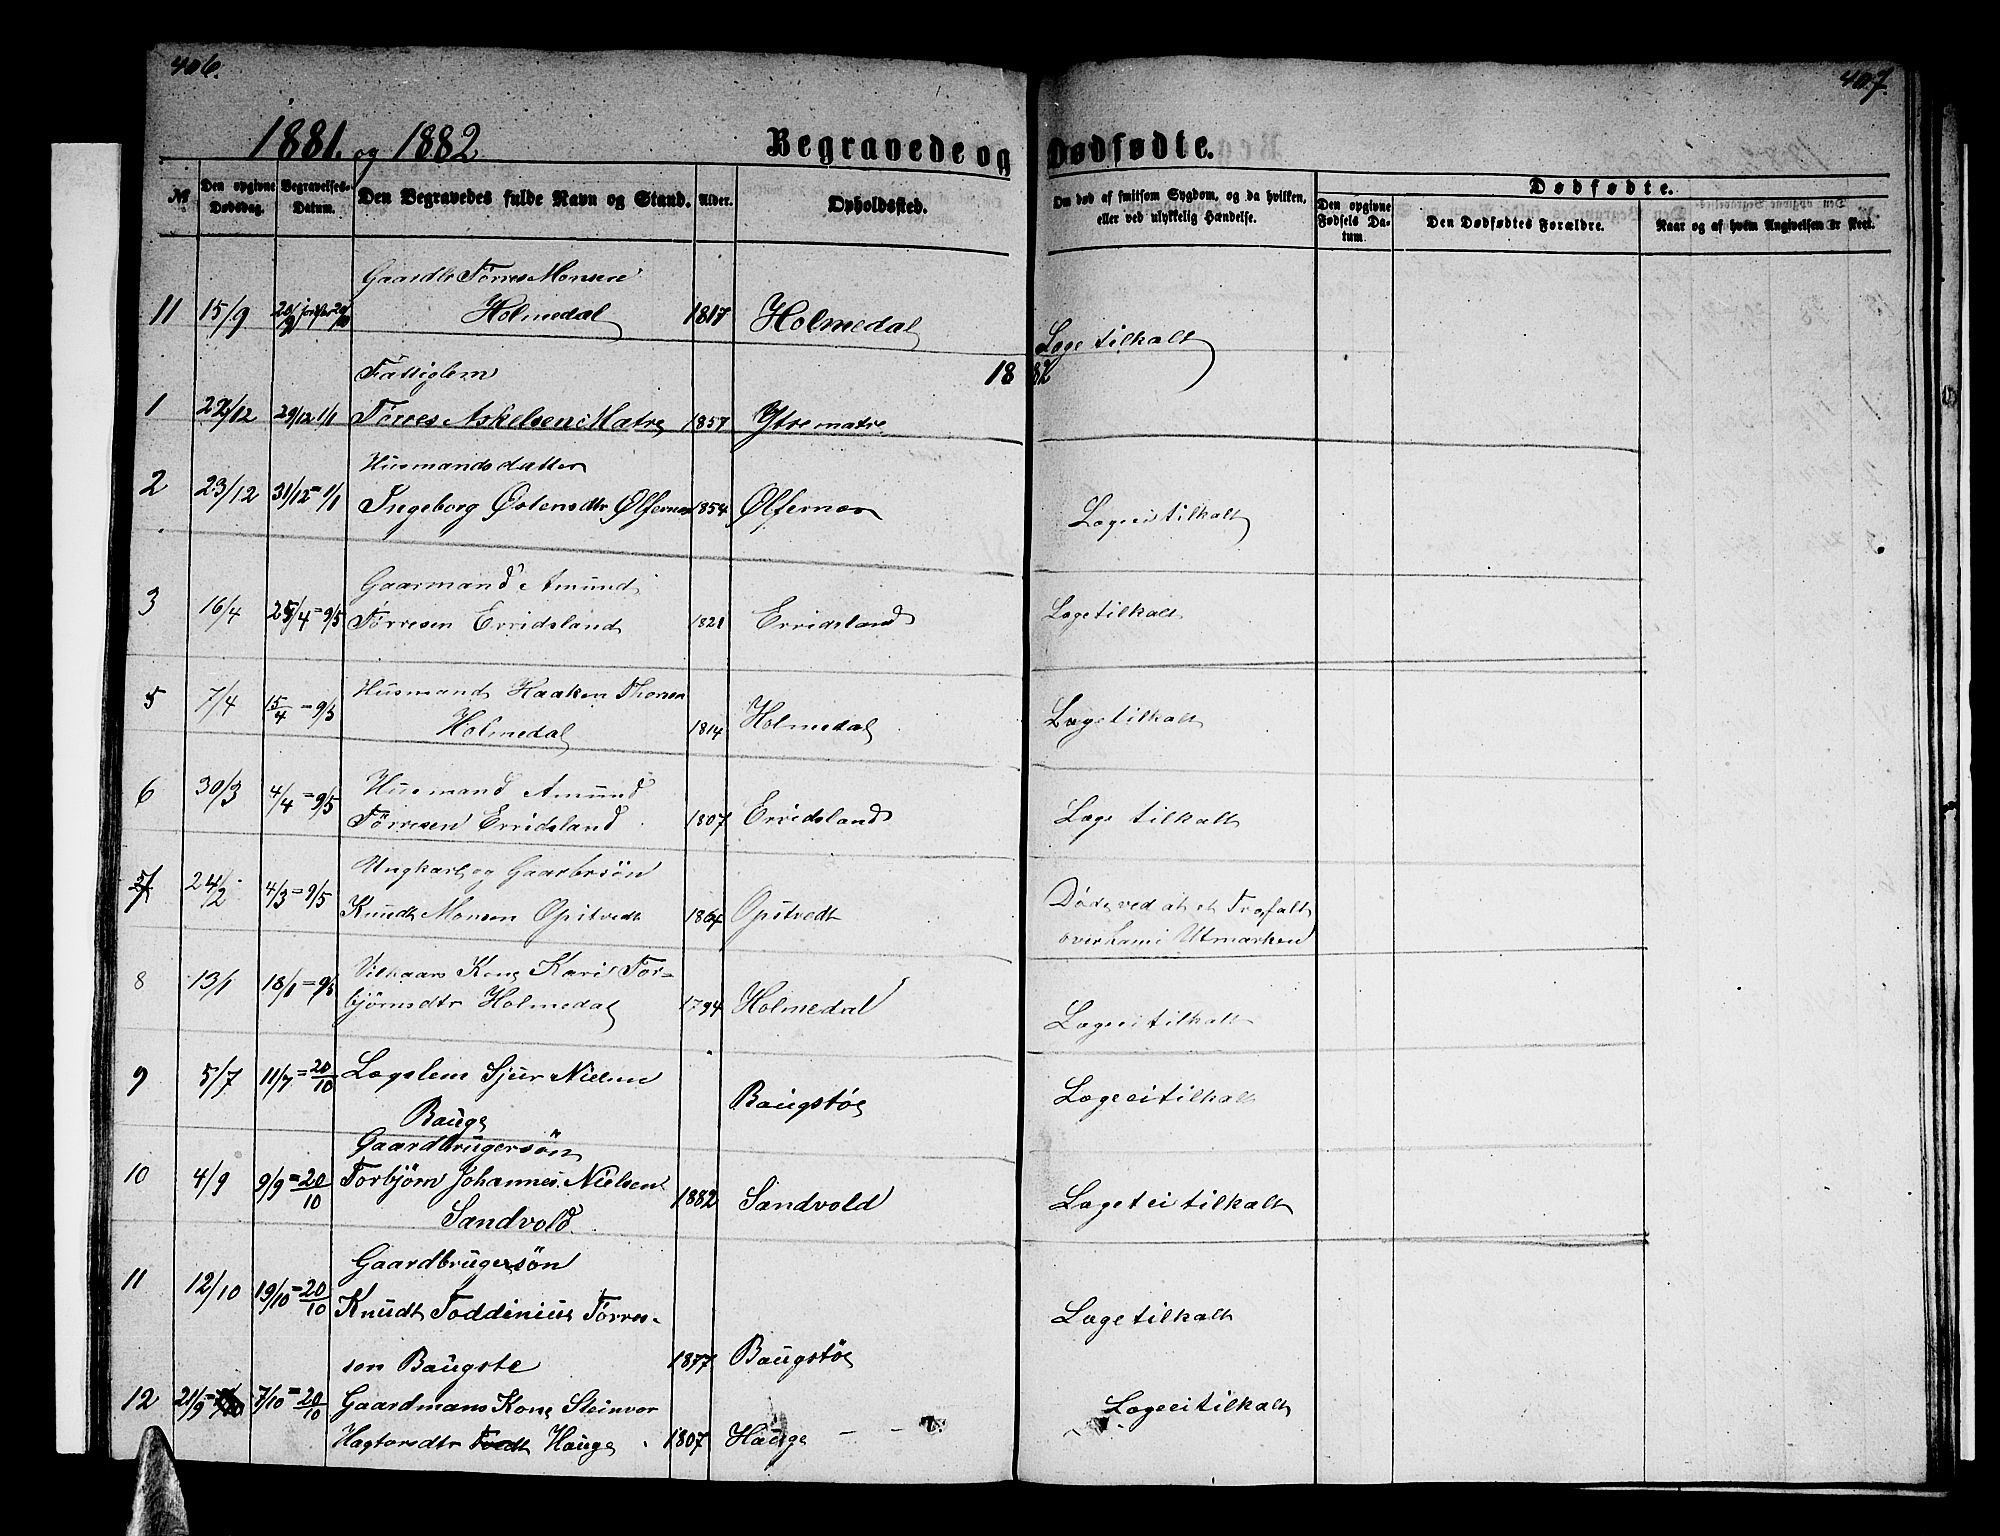 406.
407.
1881. og 1882
Begravede og Dødfødte.
№
Den opgivne Dødsdag.
Begravelses-Datum.
Den Begravedes fulde Navn og Stand.
Alder.
Opholdssted.
Om død af smitsom Sygdom, og da hvilken, eller ved ulykkelig Hændelse.
Dødfødte.
Den opgivne Fødsels Datum.
Den Dødfødtes Forældre.
Naar og af hvem Angivelsen er skeet.
Gaardbr Tørres Monsen
11 15/9 Holmedal 1817 Holmedal Læge tilkalt
1882
Fattiglem
1 22/12 29/12 1/1 Tørres Askelsen Matre 1857 Ytre matre
Husmandsdatter
2 23/12 31/12=1/1 Ingeborg Østensdtr Ølfernes 1854 Ølfernes Læge ei tilkalt
Gaarmand Amund
3 16/4 25/4=9/5 Tørresen Erridsland 1821 Erridsland Læge tilkalt
5 7/4 15/4=9/5 Husmand Haaken Thorsen
Holmedal 1814 Holmedal Læge tilkalt
6 30/3 4/4=9/5 Husmand Amund
Tørresen Erridsland 1807 Erridsland Læge tilkalt
7 24/2 4/3=9/5 Ungkarl og Gaarbrsøn
Knudt Monsen Opitvedt 1864 Opitvedt Døde ved at et Træ falt
over ham i Utmarken
8 13/1 18/1=9/5 Vilkaars Kone Kari Tor-
bjørnsdtr Holmedal 1794 Holmedal Læge ei tilkalt
9 5/7 11/7=20/10 Lægslem Sjur Nielsen
Bauge Baugstøe Læge ei tilkalt
Gaardbrugersøn
10 4/9 9/9=20/10 Torbjørn Johannes Nielsen
Sandvold 1882 Sandvold Læge ei tilkalt
Gaardbrugersøn
11 12/10 19/10=20/10 Knudt Toddinius Tørres-
sen Baugste 1877 Baugstøe Læge tilkalt
12 21/9 7/10=20/10 Gaardmans Kone Steinvor
Hagtoredtr Hauge 1807 Hauge Læge ei tilkalt